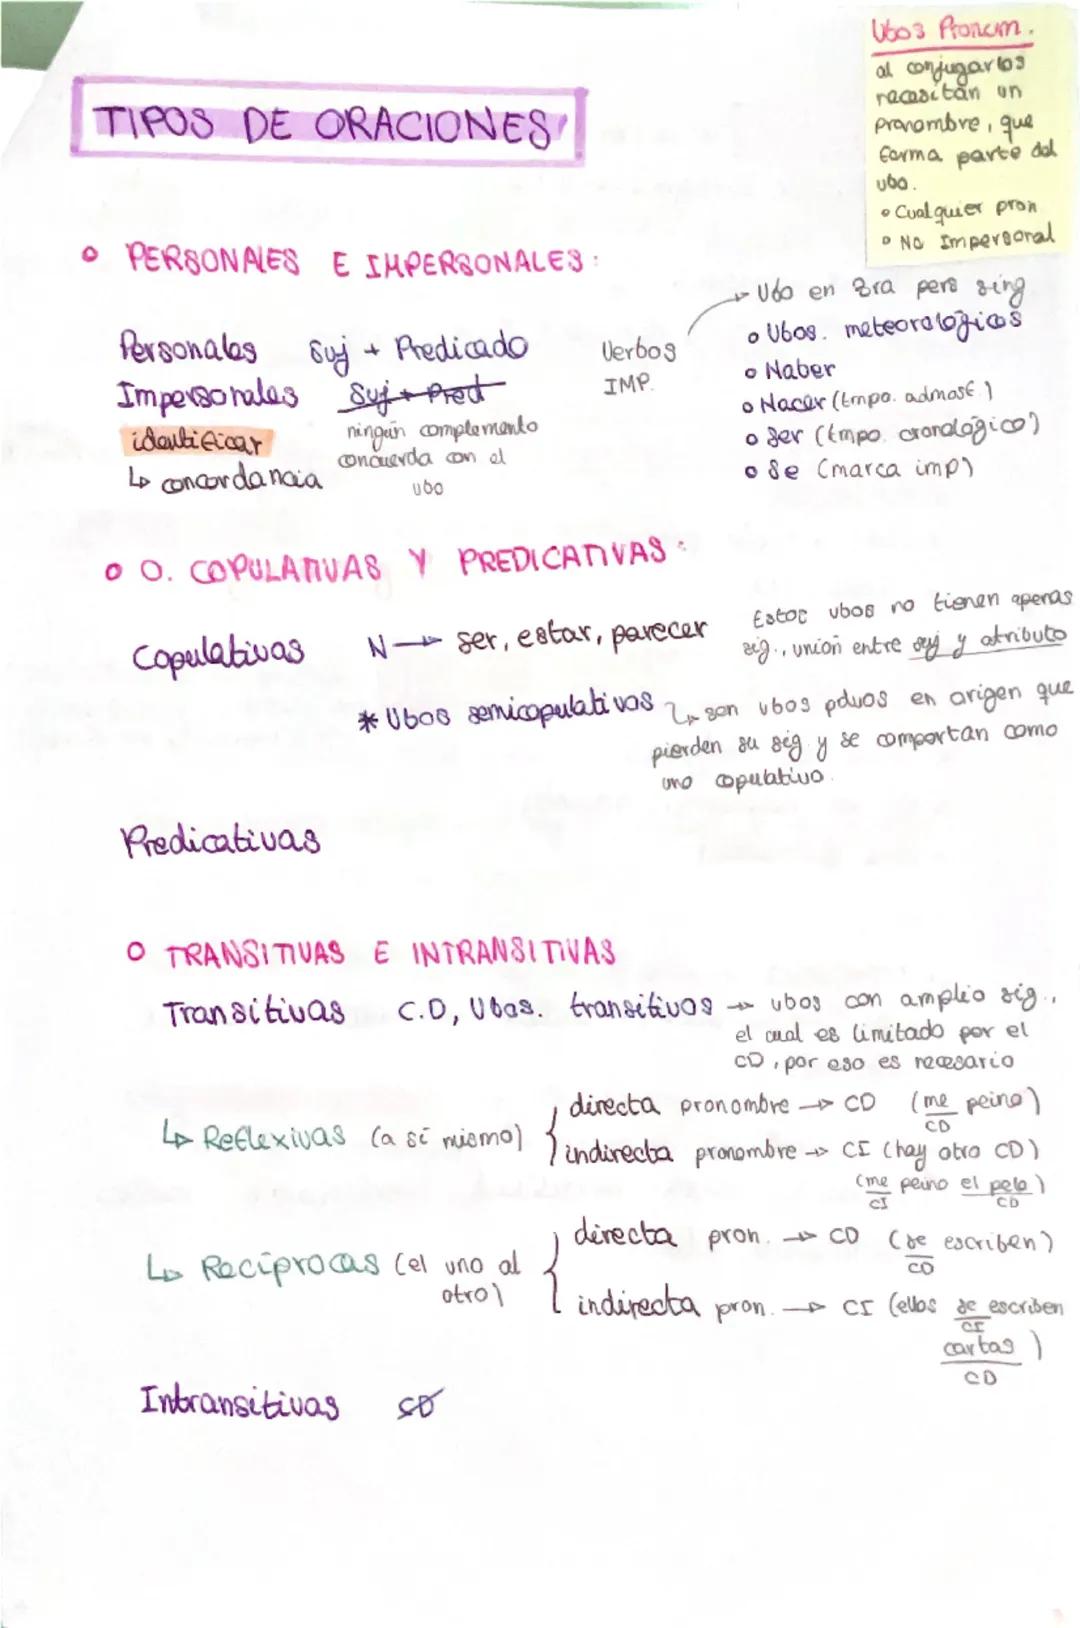 Vbos Pronom.
al conjugarlos
necesitan un
pronombre, que
forma parte del
vbo.
• Cualquier pron
• No Impersonal
TIPOS DE ORACIONES
• PERSONALES E IMPERSONALES:
Personales Suj + Predicado
Impersonales Suj + Pred
identificar
↳ concordancia
ningún complemento
concuerda con el
vbo
Verbos
IMP.
→ Vbo en 3ra pers sing
• Vbos. meteorológicos
• Haber
• Hacer (tmpo. admosf.)
• Ser (tmpo. cronológico)
• Se (marca imp)
• O. COPULATIVAS Y PREDICATIVAS:
Copulativas N → ser, estar, parecer
Estos vbos no tienen apenas
sig., unión entre suj y atributo
* Vbos semicopulativos ↳ son vbos pdvos en origen que
pierden su sig y se comportan como
uno copulativo.
Predicativas
• TRANSITIVAS E INTRANSITIVAS
Transitivas C.D, Vbos. transitivos → vbos con amplio sig.,
el cual es limitado por el
CD, por eso es necesario
↳ Reflexivas (a sí mismo)
directa pronombre → CD (me peino)
CD
indirecta pronombre → CI (hay otro CD)
(me peino el pelo)
CI CD
↳ Recíprocas (el uno al
otro)
directa pron. → CD (se escriben)
CD
indirecta pron. → CI (ellos se escriben
CI
cartas)
CD
Intransitivas CD